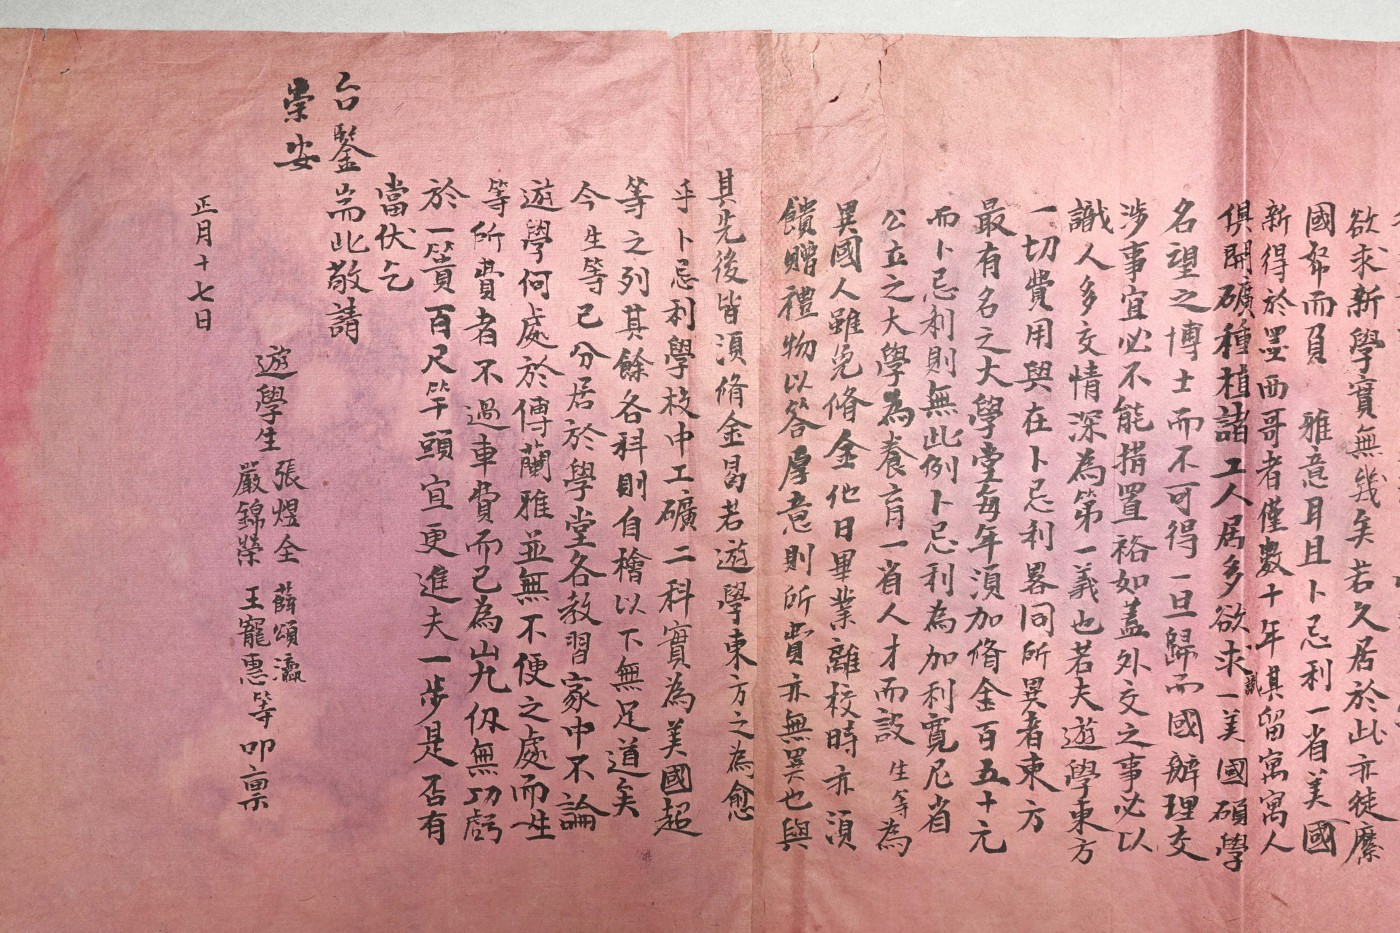 欲求新學實無幾矣若久居於此亦徒縻
國帑而負　雅意耳且卜忌利一省美國
新得於墨西哥者僅數十年其留寓寓人
俱開礦種植諸工人居多欲求識一美國碩學
名望之博士而不可得一旦歸而國辦理交
涉事宜必不能措置裕如蓋外交之事必以
識人多交情深為第一義也若夫遊學東方
一切費用與在卜忌利畧同所異者東方
最有名之大學堂每年須加脩金百五十元
而卜忌利則無此例卜忌利為加利寬尼省
公立之大學為養育一省人才而設生等為
異國人雖免脩金他日畢業離校時亦須
饋贈禮物以答厚意則所費亦無異也與
其先後皆須脩金曷若遊學東方之為愈
乎卜忌利學校中工礦二科實為美國超
等之列其餘各科則自檜以下無足道矣
今生等已分居於學堂各教習家中不論
遊學何處於傅蘭雅並無不便之處而生
等所費者不過車費而已為山九仞無功虧
於一簣百尺竿頭宜更進夫一步是否有
當伏乞
台鑒耑此敬請
崇安
遊學生 張煜全 薛頌瀛
嚴錦榮 王寵惠等叩稟
正月十七日